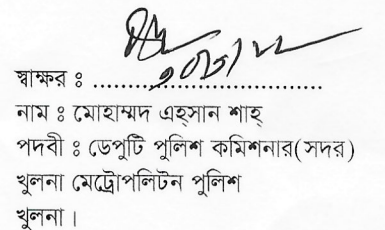 স্বাক্ষর ঃ ................................
নাম ঃ মোহাম্মদ এহ্সান শাহ্
পদবী ঃ ডেপুটি পুলিশ কমিশনার(সদর)
খুলনা মেট্রোপলিটন পুলিশ
খুলনা।